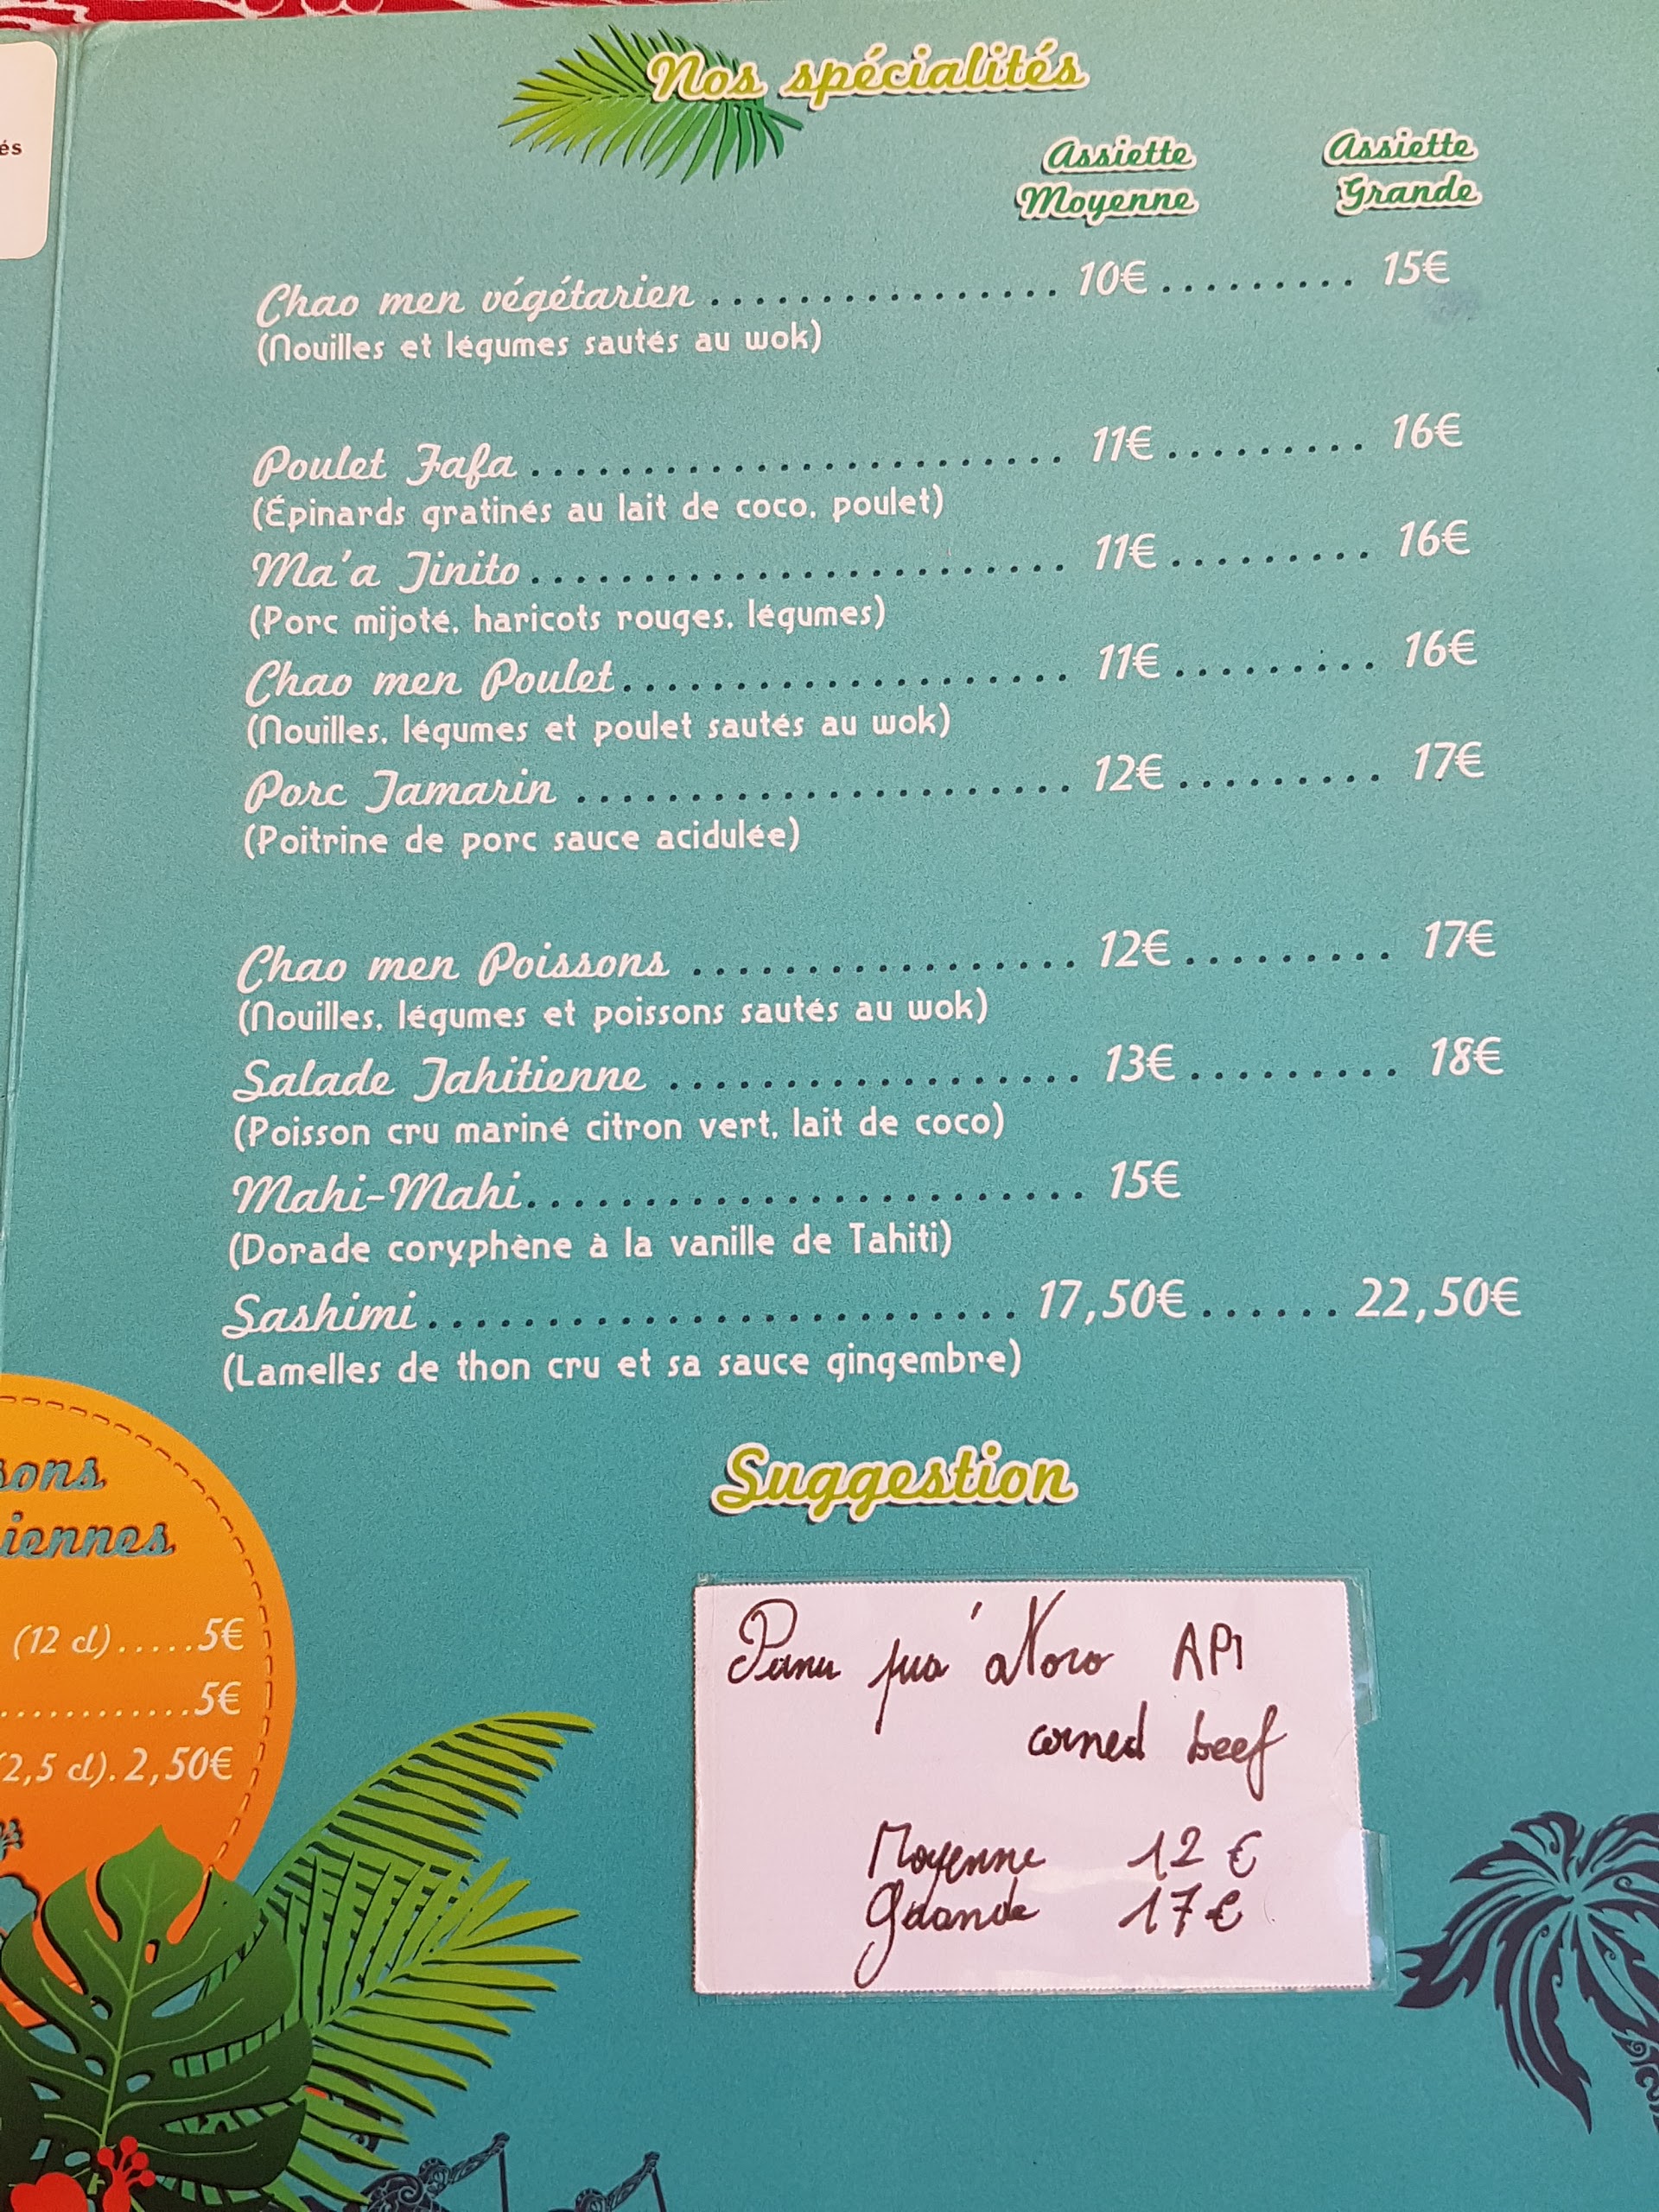 és
Nos spécialités
Assiette Moyenne
Assiette Grande
Chao men végétarien ............... 10€ ......... 15€
(Nouilles et légumes sautés au wok)
Poulet Fafa ....................... 11€ ......... 16€
(Épinards gratinés au lait de coco, poulet)
Ma'a Tinito ....................... 11€ ......... 16€
(Porc mijoté, haricots rouges, légumes)
Chao men Poulet .................... 11€ ......... 16€
(Nouilles, légumes et poulet sautés au wok)
Porc Tamarin ...................... 12€ ......... 17€
(Poitrine de porc sauce acidulée)
Chao men Poissons ................. 12€ ......... 17€
(Nouilles, légumes et poissons sautés au wok)
Salade Tahitienne .................. 13€ ......... 18€
(Poisson cru mariné citron vert, lait de coco)
Mahi-Mahi ........................ 15€
(Dorade coryphène à la vanille de Tahiti)
Sashimi ......................... 17,50€ ...... 22,50€
(Lamelles de thon cru et sa sauce gingembre)
sons
iennes
(12 cl).....5€
............5€
2,5 cl).2,50€
Suggestion
API
corned beef
Moyenne 12 €
Grande 17 €